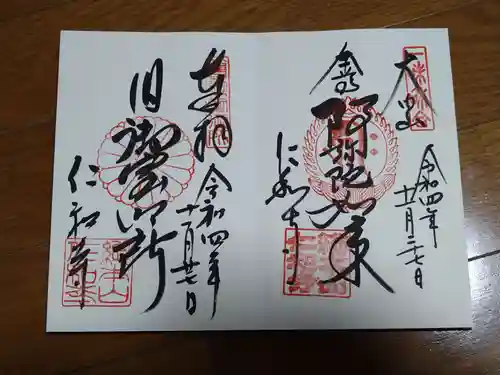 令和四年
十一月二七日
金堂
阿弥陀如来
仁和寺
奉拝
令和四年
十一月廿七日
旧御室御所
仁和寺